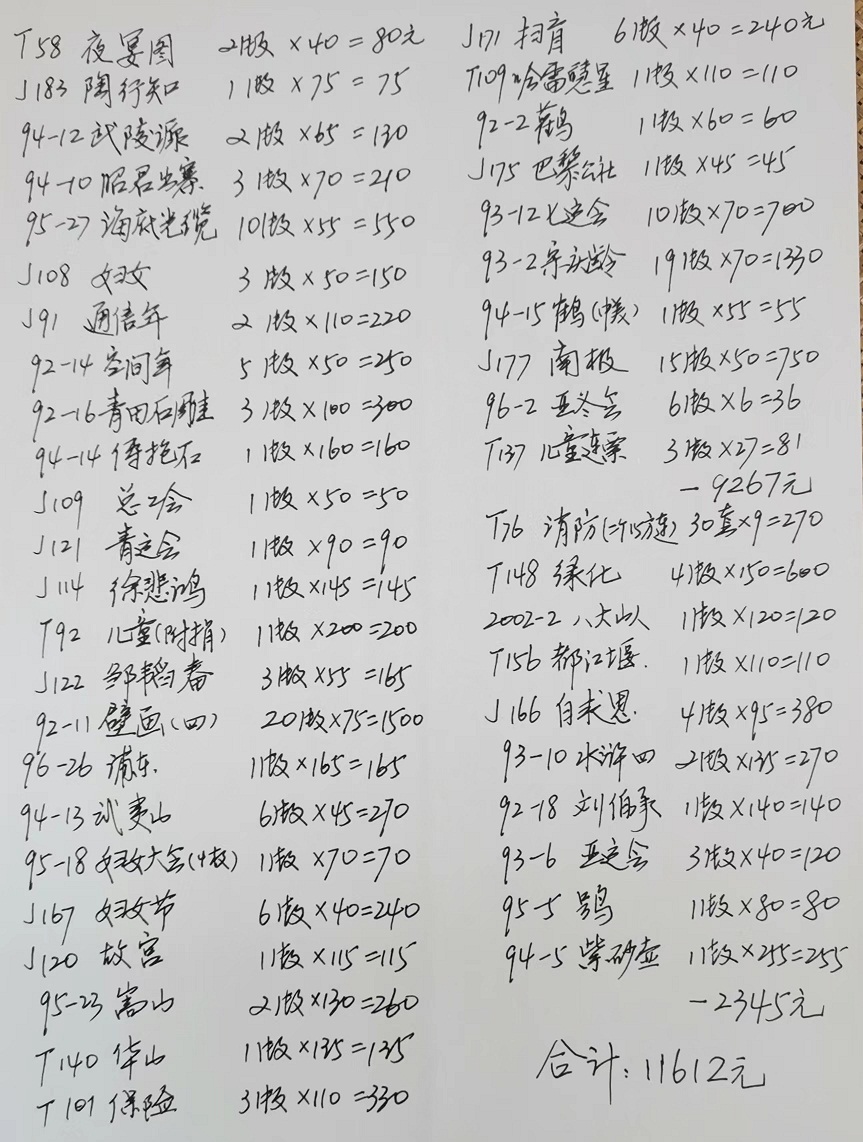 T58 夜宴图 2版×40=80元
J183 陶行知 1版×75=75
94-12 武陵源 2版×65=130
94-10 昭君出塞 3版×70=210
95-27 海底光缆 10版×55=550
J108 妇女 3版×50=150
J91 通信年 2版×110=220
92-14 空间年 5版×50=250
92-16 青田石雕 3版×100=300
94-14 傅抱石 1版×160=160
J109 总工会 1版×50=50
J121 青运会 1版×90=90
J114 徐悲鸿 1版×145=145
T92 儿童(附捐) 1版×200=200
J122 邹韬奋 3版×55=165
92-11 壁画(四) 20版×75=1500
96-26 浦东. 1版×165=165
94-13 武夷山 6版×45=270
95-18 妇女大会(4枚) 1版×70=70
J167 妇女节 6版×40=240
J120 故宫 1版×115=115
95-23 嵩山 2版×130=260
T140 华山 1版×135=135
T101 保险 3版×110=330
J171 扫盲 6版×40=240元
T109 哈雷慧星 1版×110=110
92-2 鹳 1版×60=60
J175 巴黎公社 1版×45=45
93-12 七运会 10版×70=700
93-2 宋庆龄 19版×70=1330
94-15 鹤 1版×55=55
J177 南极 15版×50=750
96-2 亚冬会 6版×6=36
T137 儿童连票 3版×27=81
-9267元
T76 消防(二方连) 30套×9=270
T148 绿化 4版×150=600
2002-2 八大山人 1版×120=120
T156 都江堰. 1版×110=110
J166 白求恩. 4版×95=380
93-10 水浒四 2版×135=270
92-18 刘伯承 1版×140=140
93-6 亚运会 3版×40=120
95-5 鹗 1版×80=80
94-5 紫砂壶 1版×255=255
-2345元
合计:11612元